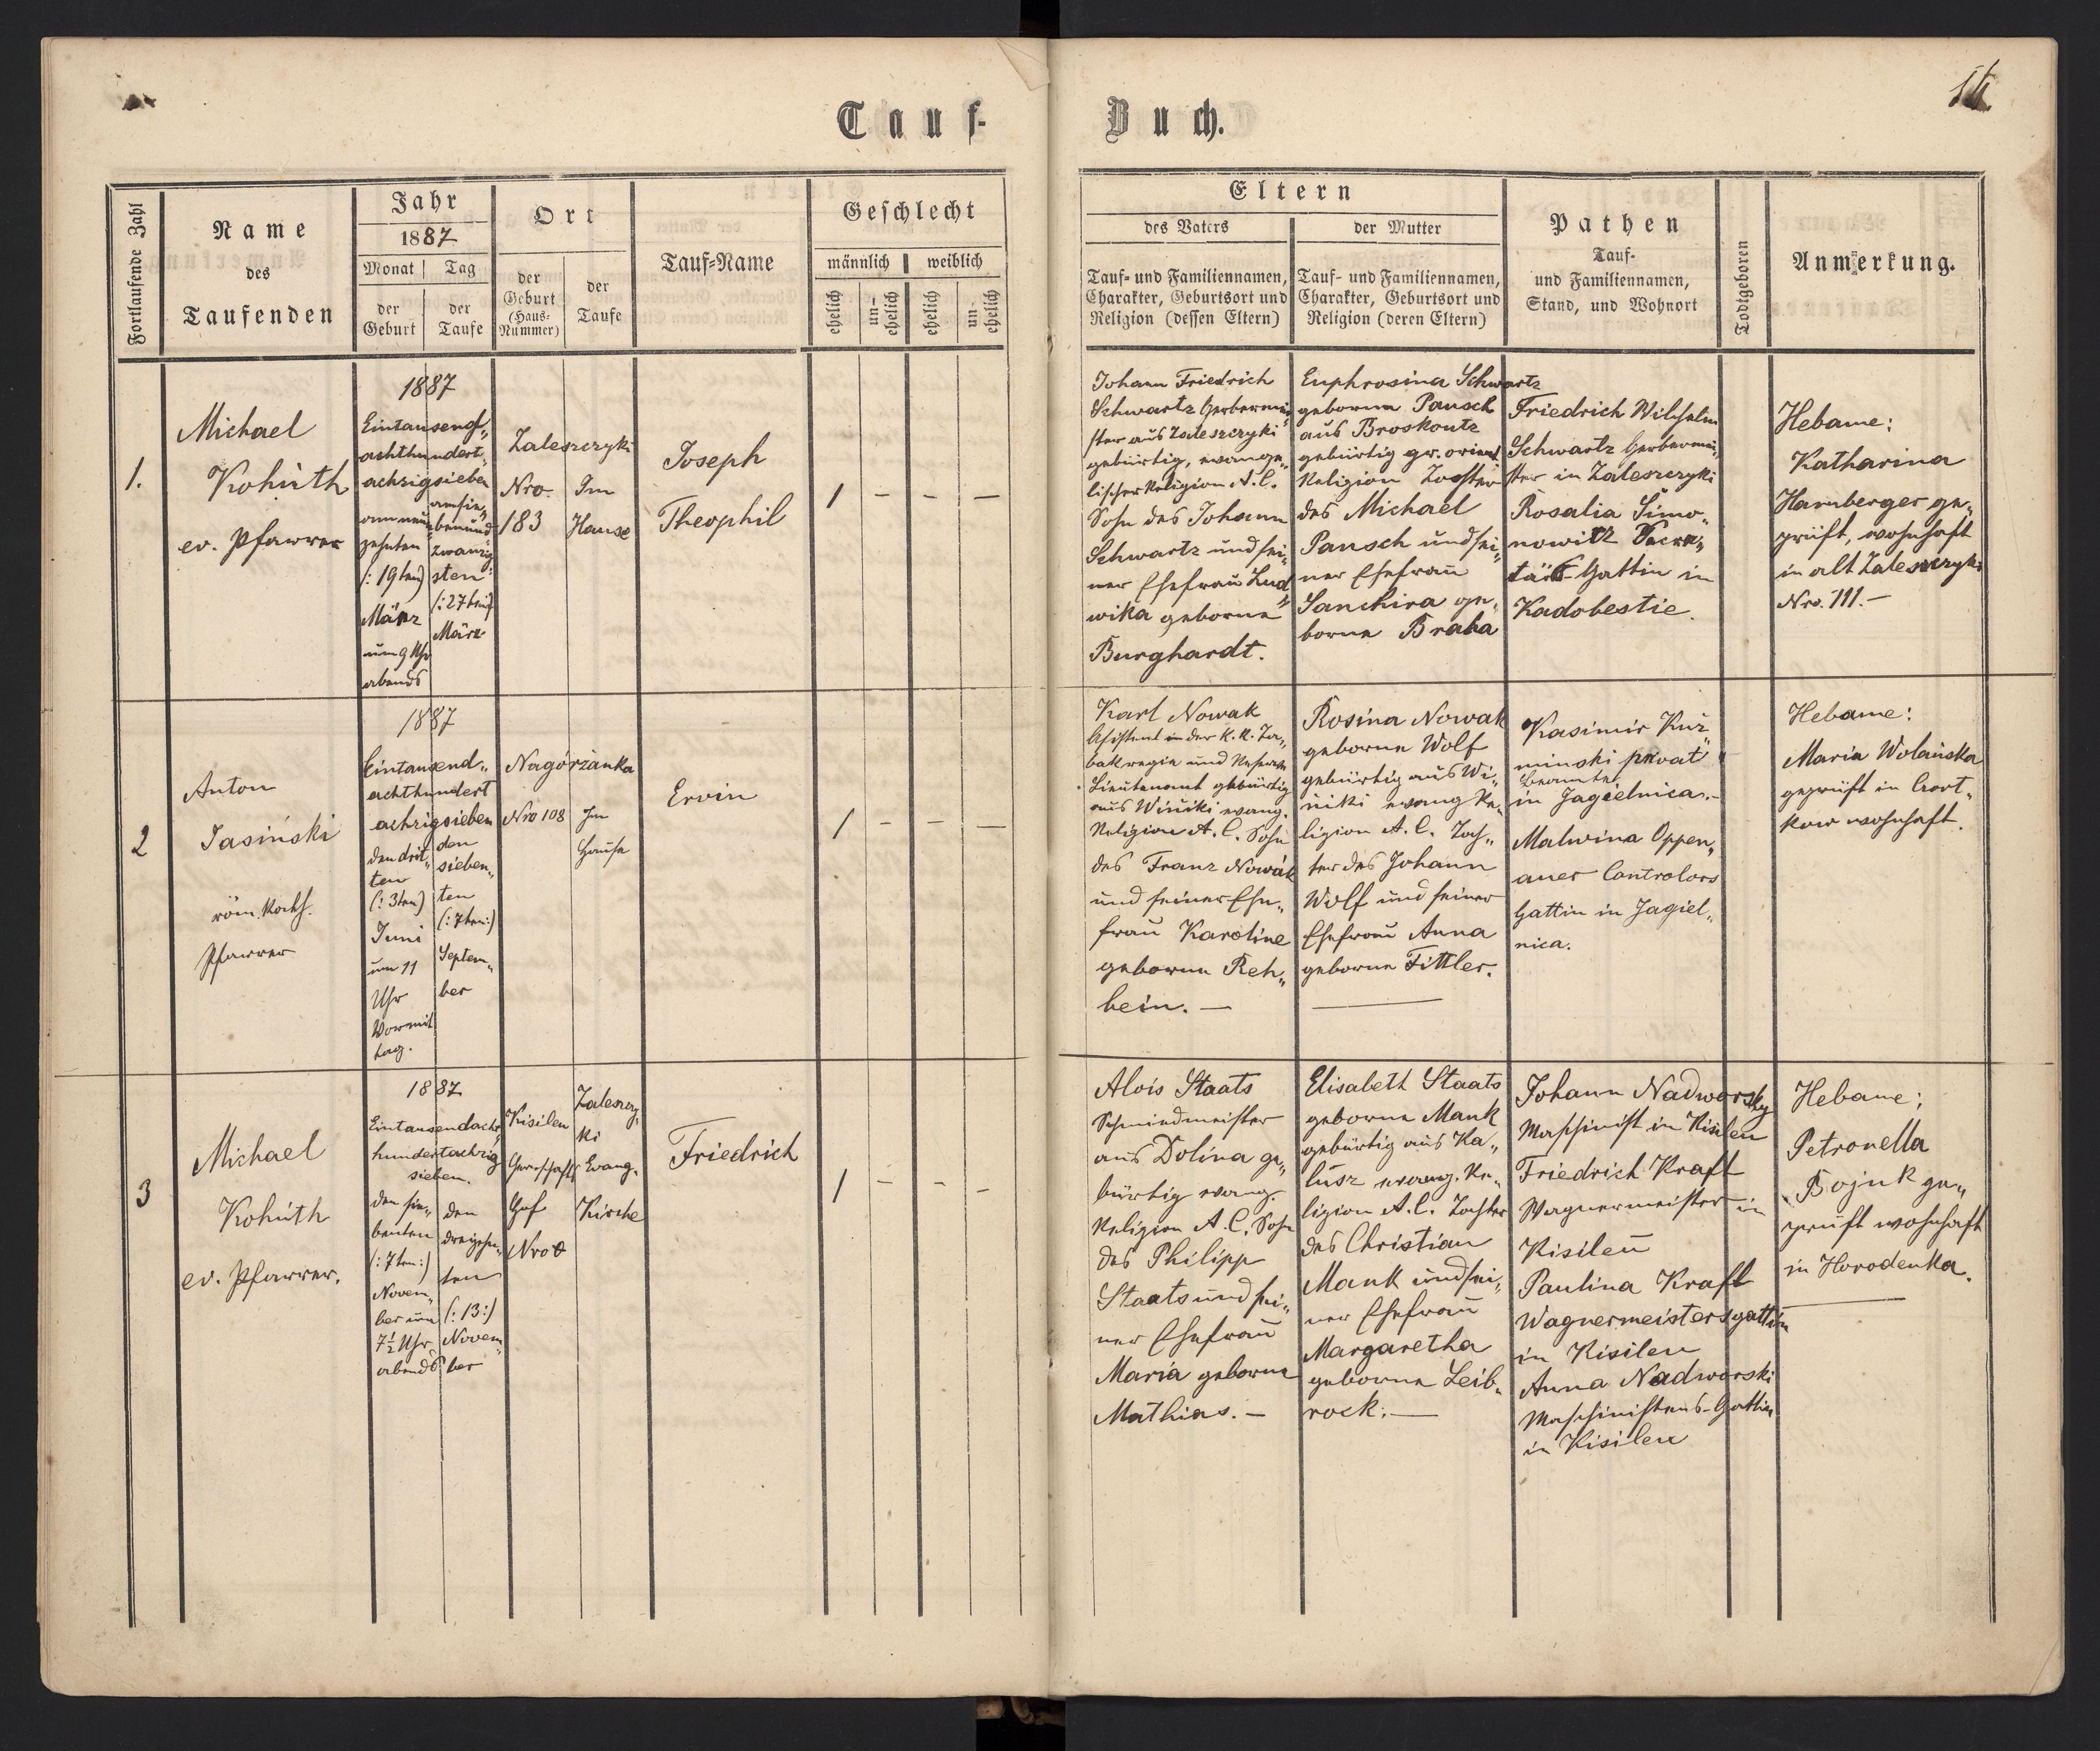 Tauf-
Buch.
Fortlaufende Zahl
Name
des
Taufenden
Jahr
1887
Monat
Tag
der
Geburt
der
Taufe
Ort
der
Geburt
(Haus-
Nummer)
der
Taufe
Tauf-Name
Geschlecht
männlich
weiblich
ehelich
un-
ehelich
ehelich
un-
ehelich
Eltern
des Vaters
der Mutter
Tauf- und Familiennamen,
Charakter, Geburtsort und
Religion (dessen Eltern)
Tauf- und Familiennamen,
Charakter, Geburtsort und
Religion (deren Eltern)
Pathen
Tauf-
und Familiennamen,
Stand, und Wohnort
Todtgeboren
Anmerkung.
1.
Michael
Kohúth
ev. Pfarrer
1887
Eintausend„
achthundert„
achzigsieben
am neun„
zehnten
(: 19ten)
März
um 9 Uhr
abends
am sie„
benund„
zwanzig
sten
(: 27ten:)
März
Zaleszczyki
Nro.
183
Im
Hause
Joseph
Theophil
1 - - -
Johann Friedrich
Schwartz Gerbermei„
ster aus Zaleszczyki
gebürtig, evange„
lischer Religion A. C.
Sohn des Johann
Schwartz und sei„
ner Ehefrau Lud„
wika geborne
Burghardt.
Euphrosina Schwartz
geborne Pansch
aus Broskoutz
gebürtig gr. orient
Religion Tochter
des Michael
Pansch und sei„
ner Ehefrau
Sanchira ge„
borne Braha
Friedrich Wilhelm
Schwartz Gerbermei„
ster in Zaleszczyki
Rosalia Simo„
nowitz Secre„
tärs-Gattin in
Kadobestie.
Hebame:
Katharina
Hamberger ge„
prüft, wohnhaft
in alt Zaleszczyki
Nro. 111.-
2
Anton
Jasiński
röm. kath.
Pfarrer
1887
Eintausend„
achthundert
achzigsieben
den drit„
ten
(: 3ten)
Juni
um 11
Uhr
Vormit
tag.
den
sieben„
ten
(: 7ten:)
Septem„
ber
Nagórzanka
Nro 108
Im
Hause
Ervin
1 - - -
Karl Nowak
Assistent in der K. K. Ta„
bakregie und Reserve
Lieutenant gebürtig
aus Winiki evang.
Religion A. C. Sohn
des Franz Nowak
und seiner Ehe„
frau Karoline
geborne Reh„
bein. -
Rosina Nowak
geborne Wolf
gebürtig aus Wi„
niki evang Re„
ligion A. C. Toch„
ter des Johann
Wolf und seiner
Ehefrau Anna
geborne Fittler.
Kasimir Kuź„
minski privat
Beamter
in Jagielnica.-
Malwina Oppen„
auer Controlors
Gattin in Jagiel„
nica.
Hebame:
Maria Wolańska
geprüft in Czort„
kow wohnhaft.
3
Michael
Kohúth
ev. Pfarrer.
1887
Eintausendacht
hundertachzig
sieben.
den sie„
benten
(: 7ten:)
Novem„
ber um
7½ Uhr
abends
den
dreizehn„
ten
(: 13:)
Novem„
ber
Kisileu
Herrschafts
Hof
Nro 0
Zaleszczy„
ki
Evang.
Kirche
Friedrich
1 - - -
Alois Staats
Schmiedmeister
aus Dolina ge„
bürtig evang.
Religion A. C. Sohn
des Philipp
Staats und sei„
ner Ehefrau
Maria geborne
Mathias. -
Elisabeth Staats
geborne Mank
gebürtig aus Ka„
lusz evang. Re„
ligion A. C. Tochter
des Christian
Mank und sei„
ner Ehefrau
Margaretha
geborne Leib„
rock. -
Johann Nadworsky
Maschinist in Kisileu
Friedrich Kraft
Wagnermeister in
Kisileu
Paulina Kraft
Wagnermeistersgattin
in Kisileu
Anna Nadworski
Maschinistens-Gattin
in Kisileu
Hebame:
Petronella
Bojuk ge„
prüft wohnhaft
in Horodenka.